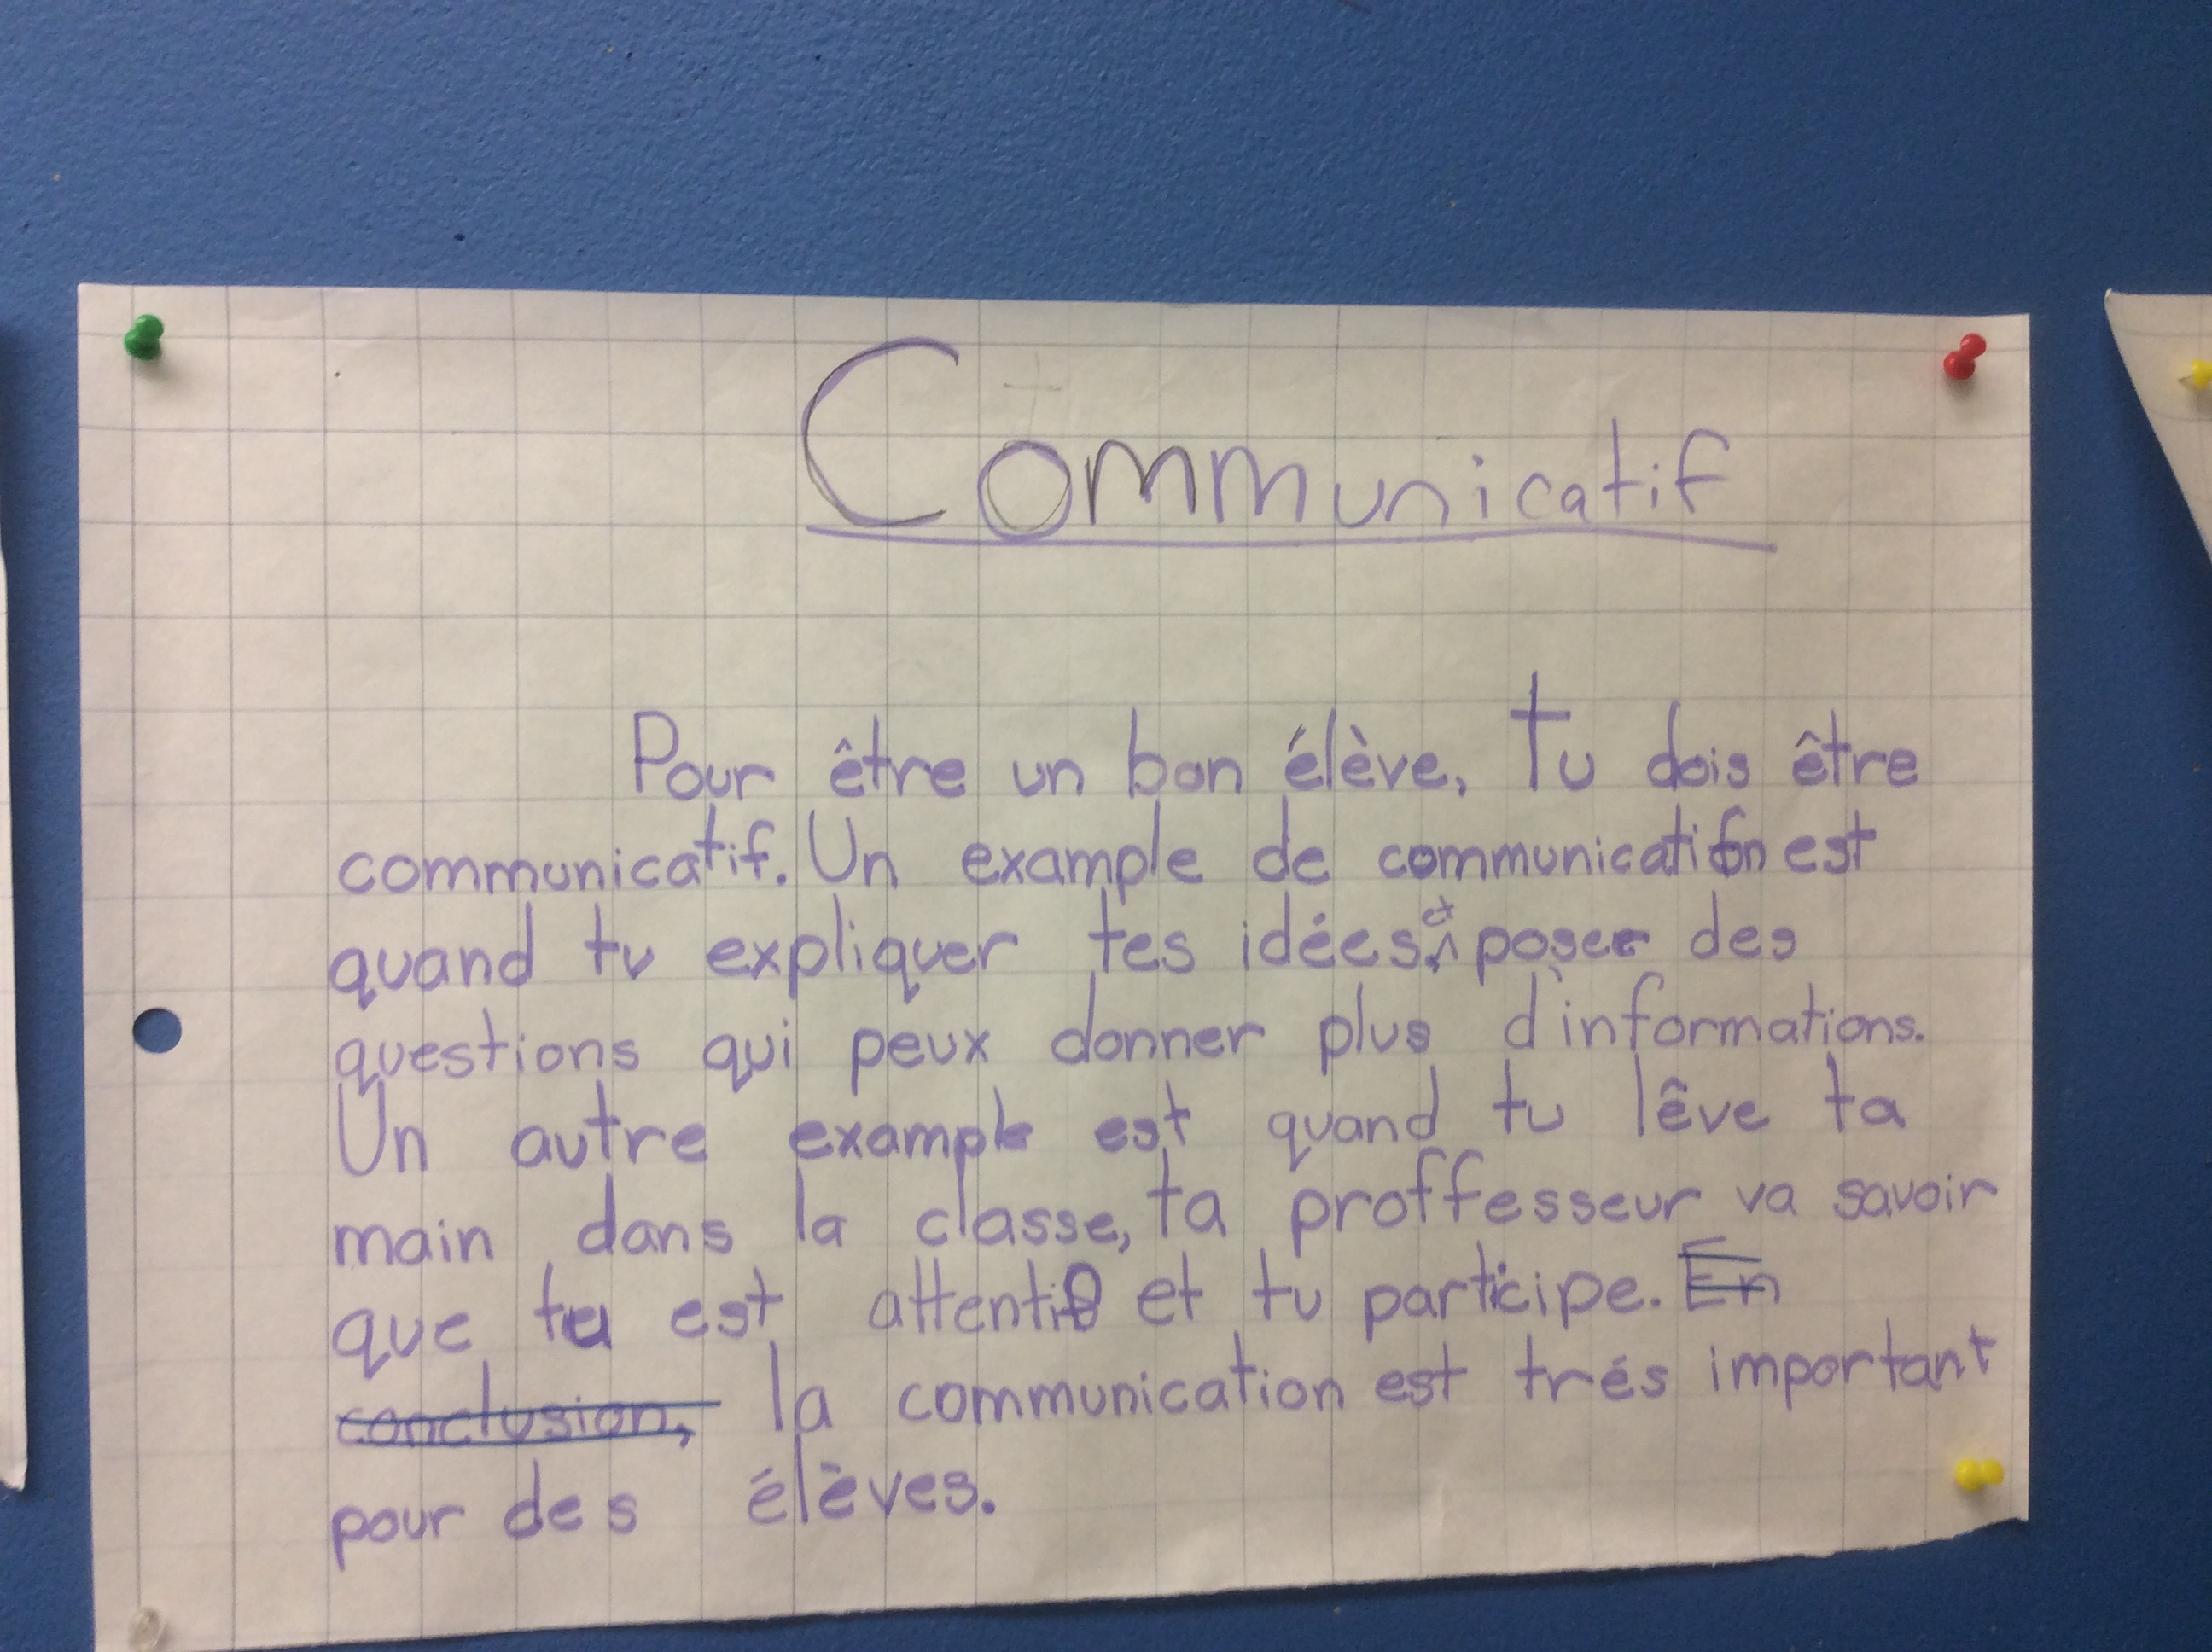 Communicatif
Pour être un bon élève, Tu dois être
communicatif. Un example de communication est
quand tu expliquer tes idées, et poser des
questions qui peux donner plus d'informations.
Un autre example est quand tu lêve ta
main dans la classe, ta proffesseur va savoir
que tu est attentif et tu participe. En
conclusion, la communication est trés important
pour des élèves.